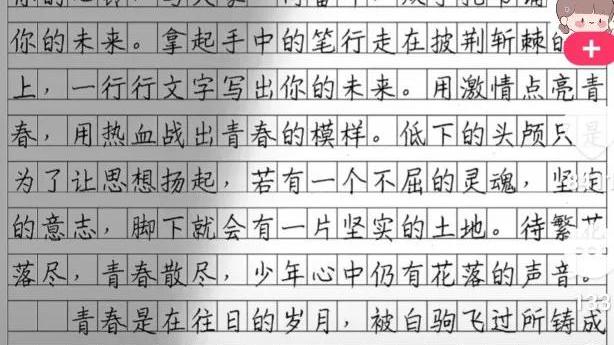 你的未来。拿起手中的笔行走在披荆斩棘的
上，一行行文字写出你的未来。用激情点亮青
春，用热血战出青春的模样。低下的头颅只是
为了让思想扬起，若有一个不屈的灵魂，坚定
的意志，脚下就会有一片坚实的土地。待繁花
落尽，青春散尽，少年心中仍有花落的声音。
青春是在往日的岁月，被白驹飞过所铸成
133